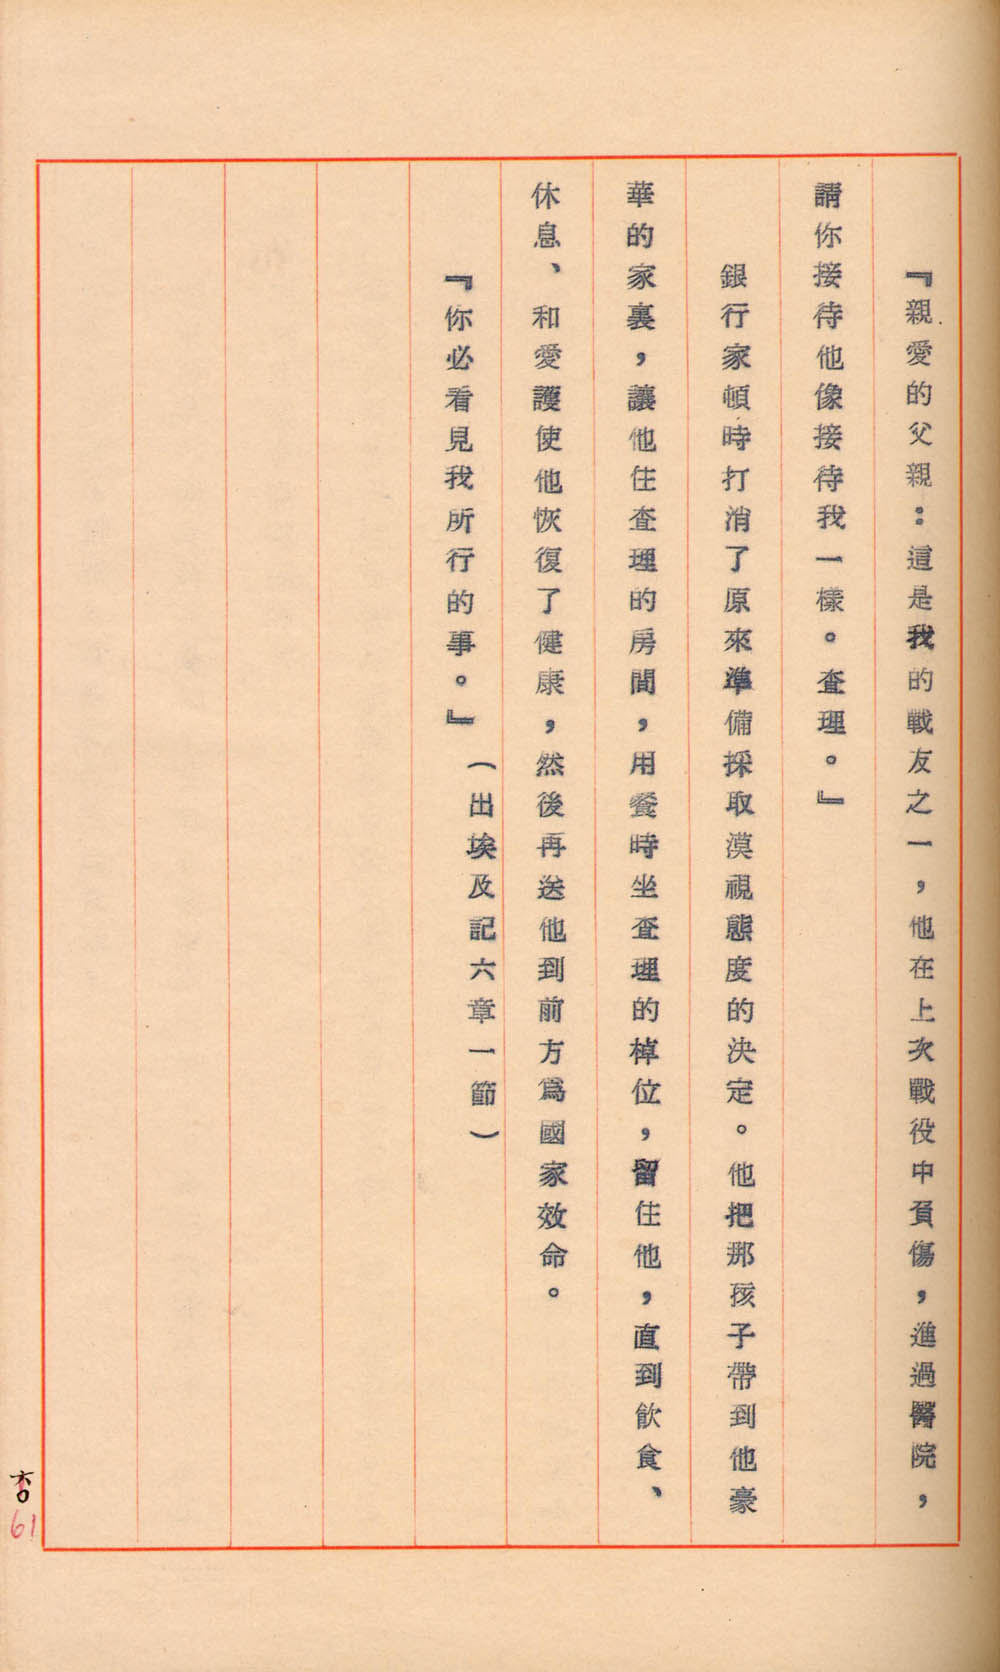 『親愛的父親：這是我的戰友之一，他在上次戰役中負傷，進過醫院，
請你接待他像接待我一樣。查理。』
銀行家頓時打消了原來準備採取漠視態度的決定。他把那孩子帶到他豪
華的家裏，讓他住查理的房間，用餐時坐查理的棹位，留住他，直到飲食、
休息、和愛護使他恢復了健康，然後再送他到前方爲國家效命。
『你必看見我所行的事。』（出埃及記六章一節）
61